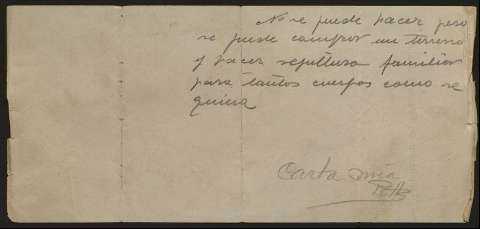 No se puede hacer pero
se puede comprar un terreno
y hacer sepultura familiar
para tantos cuerpos como se
quiera
Carta mia